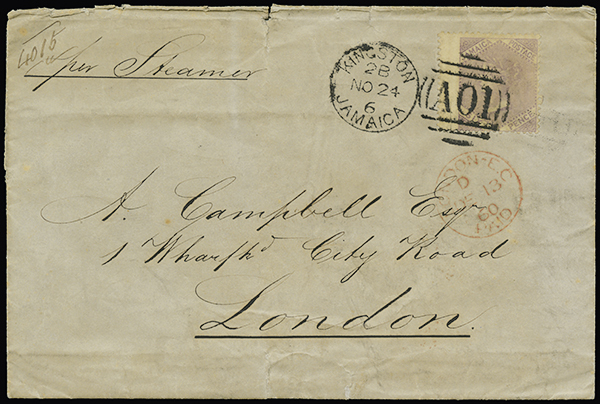 4015
per Steamer
KINGSTON
2B
NO 24
6
JAMAICA
A01
JAMAICA POSTAGE
PENCE
LONDON-E.C
D
DE 13
60
PAID
A. Campbell Esqr
1 Wharfhd City Road
London.